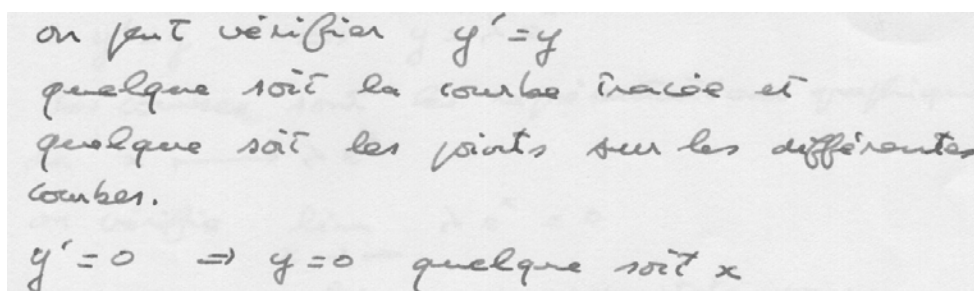 on peut vérifier y' = y
quelque soit la courbe tracée et
quelque soit les points sur les différentes
courbes.
y' = 0 ⇒ y = 0 quelque soit x